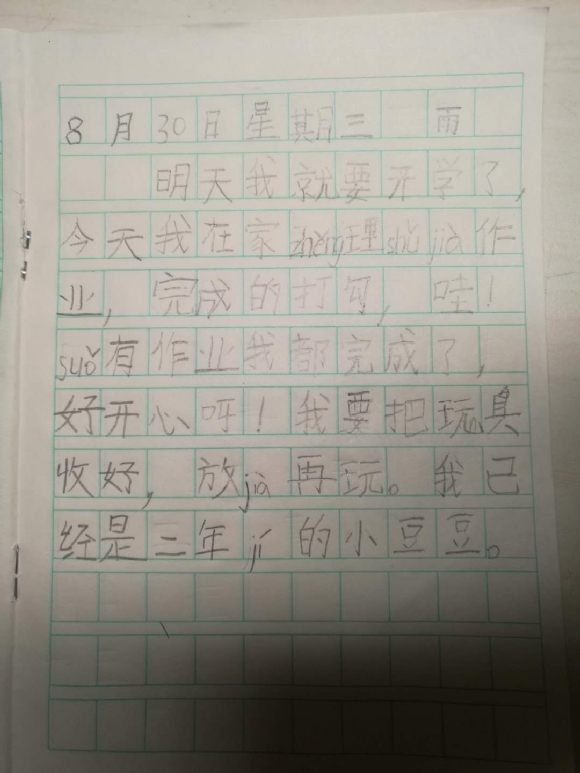 8月30日星期三 雨
明天我就要开学了,
今天我在家zhěng理shǔ jià作
业,完成的打勾,哇!
suǒ有作业我都完成了,
好开心呀!我要把玩具
收好,放jià再玩。我已
经是二年jí的小豆豆。